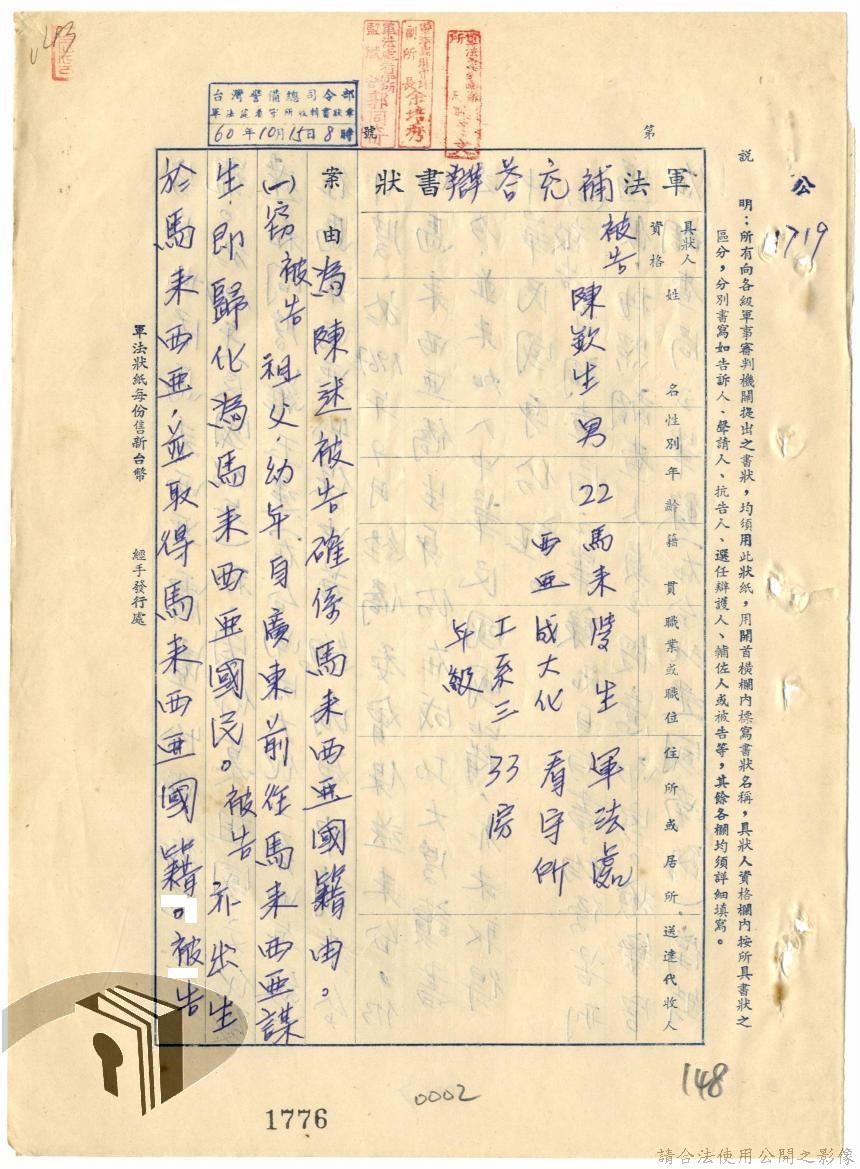 公
1719
說　明：所有向各級軍事審判機關提出之書狀，均須用此狀紙，用開首橫欄內標寫書狀名稱，具狀人資格欄內按所具書狀之
區分，分別書寫如告訴人、聲請人、抗告人、選任辯護人、輔佐人或被告等，其餘各欄均須詳細填寫。
第
號
台灣警備總司令部
60年10月15日8時
軍法補充答辯書狀
具狀人
資格
姓名
性別
年齡
籍貫
職業或職位
住所或居所
送達代收人
被告
陳欽生
男
22
馬來
西亞
學生
成大化
工系三
年級
軍法處
看守所
33房
案由為陳述被告確係馬來西亞國籍由。
(一)窃被告祖父幼年自廣東前往馬來西亞謀
生，即歸化為馬來西亞國民。被告亦出生
於馬來西亞，並取得馬來西亞國籍。被告
軍法狀紙每份售新台幣
經手發行處
148
0002
1776
請合法使用公開之影像